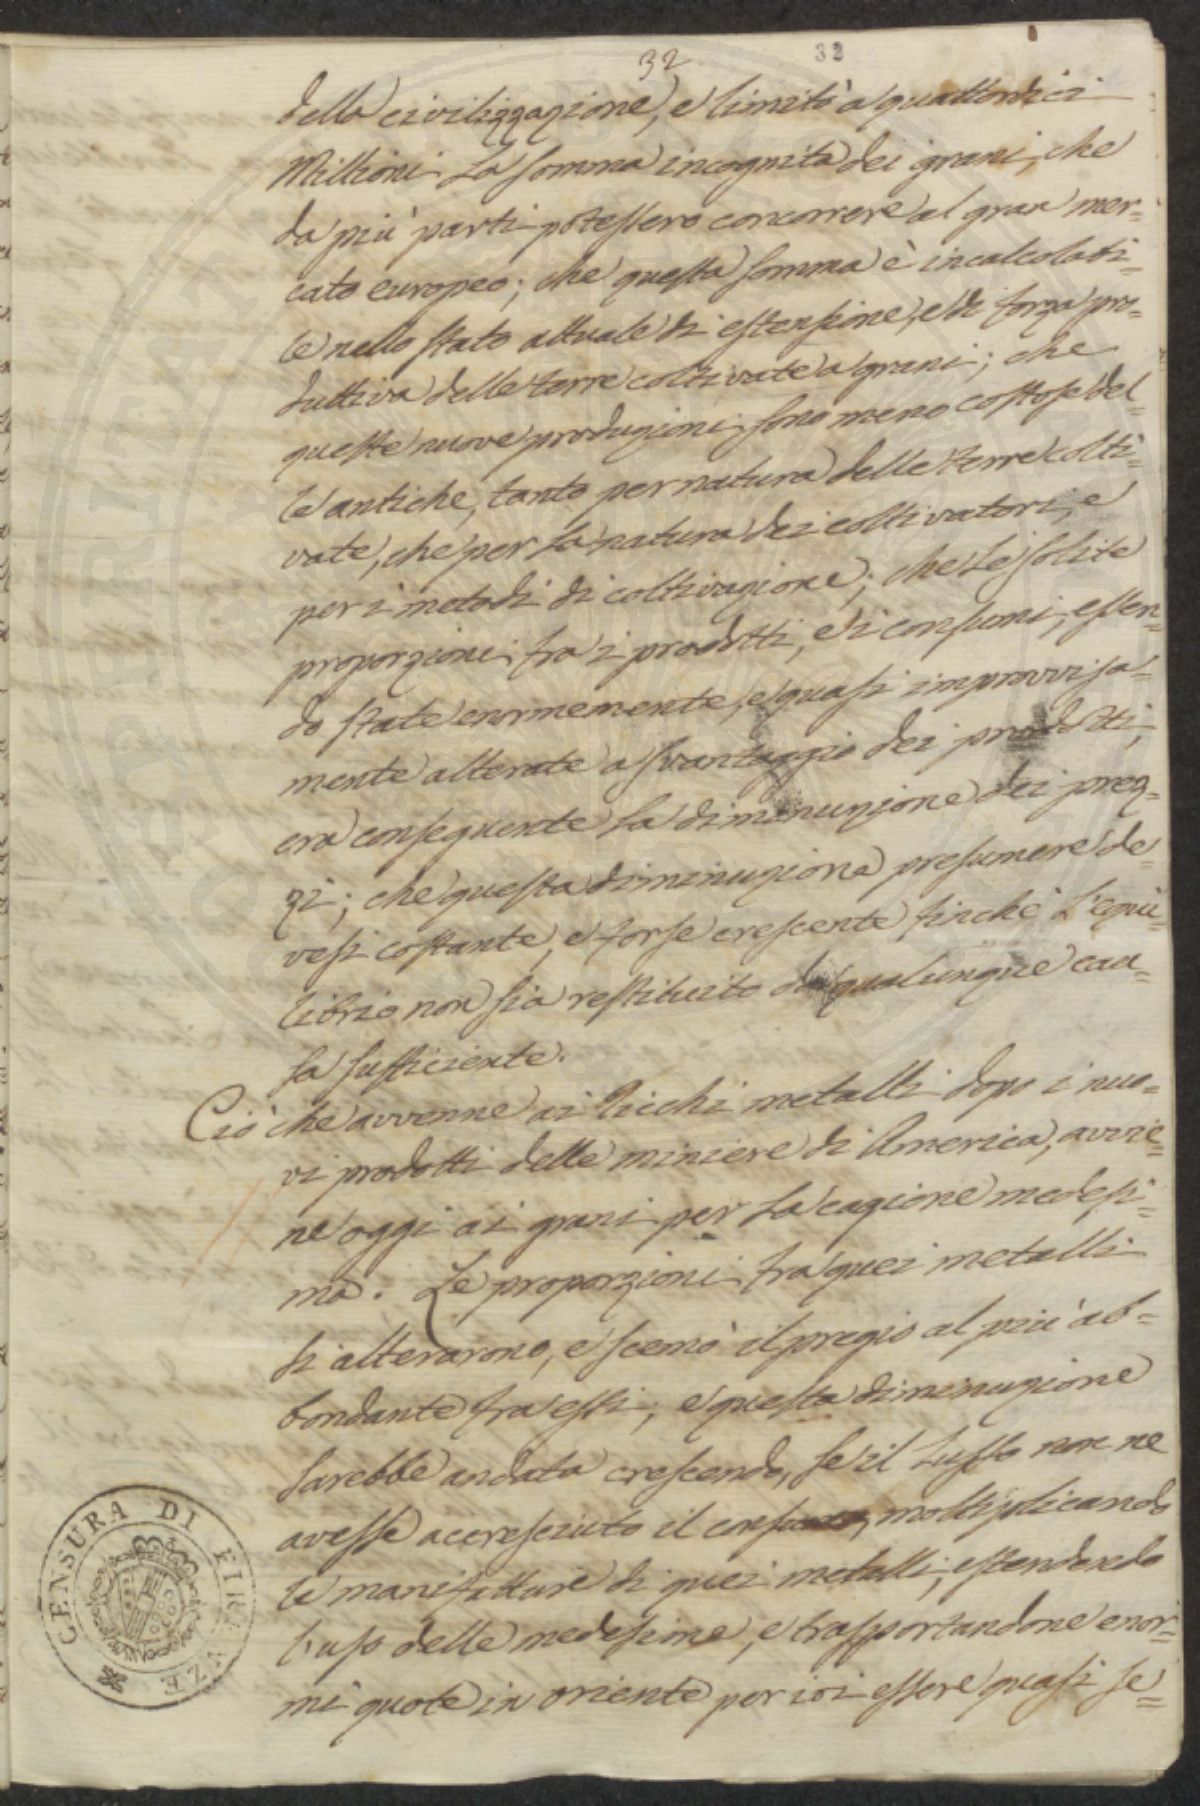 32
32
della civilizzazione, e limitò a quattordici
Millioni la somma incognita dei grani, che
da più parti potessero concorrere al gran mer=
cato europeo; che questa somma è incalcolabi=
le nello stato attuale di estensione, e di forza pro=
duttiva delle terre coltivate a grani; che
queste nuove produzioni sono meno costose del=
le antiche, tanto per natura delle terre colti=
vate, che per la natura dei coltivatori, e
per i metodi di coltivazione; che le solite
proporzioni fra i prodotti, e i consumi, essen=
do state enormemente, e quasi improvvisa=
mente alterate a svantaggio dei prodotti,
era conseguente la diminuzione dei prez=
zi; che questa diminuzione presumere de=
vesi costante, e forse crescente finchè l'equi=
librio non sia restituito da qualunque cau=
sa sufficiente.
Ciò che avvenne ai ricchi metalli dopo i nuo=
vi prodotti delle miniere di America, avvie=
ne oggi ai grani per la cagione medesi=
ma. Le proporzioni fra quei metalli
si alterarono, e scemò il pregio al più ab=
bondante fra essi; e questa diminuzione
sarebbe andata crescendo, se il lusso non ne
avesse accresciuto il consumo, moltiplicando
le manifatture di quei metalli, estendendo
l'uso delle medesime, e trasportandone enor=
mi quote in oriente per ivi essere quasi se=
CENSURA DI FIRENZE